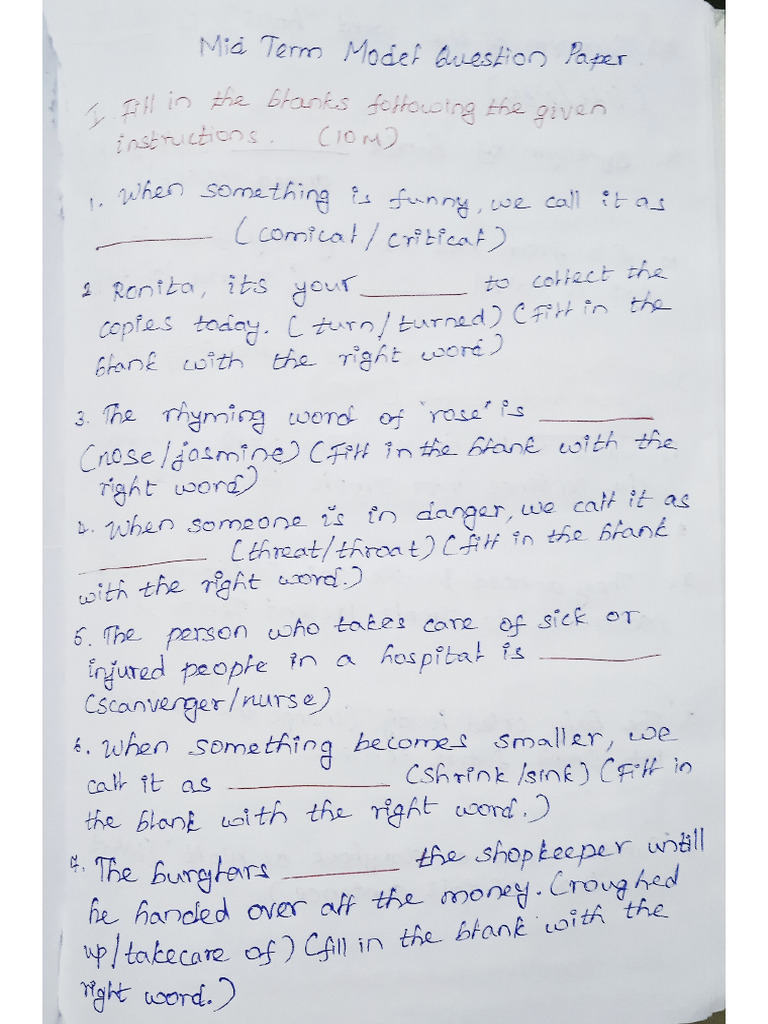 Mid Term Model Question Paper.
I. Fill in the blanks following the given
instructions. (10M)
1. When something is funny, we call it as
________ (comical/critical)
2 Ronita, its your ________ to collect the
copies today. (turn/turned) (Fill in the
blank with the right word)
3. The rhyming word of 'rose' is ________
(nose/jasmine) (Fill in the blank with the
right word)
4. When someone is in danger, we call it as
________ (threat/throat) (fill in the blank
with the right word.)
5. The person who takes care of sick or
injured people in a hospital is ________
(scanvenger/nurse)
6. When something becomes smaller, we
call it as ________ (shrink/sink) (Fill in
the blank with the right word.)
7. The burglars ________ the shopkeeper untill
he handed over all the money. (roughed
up/takecare of) (fill in the blank with the
right word.)